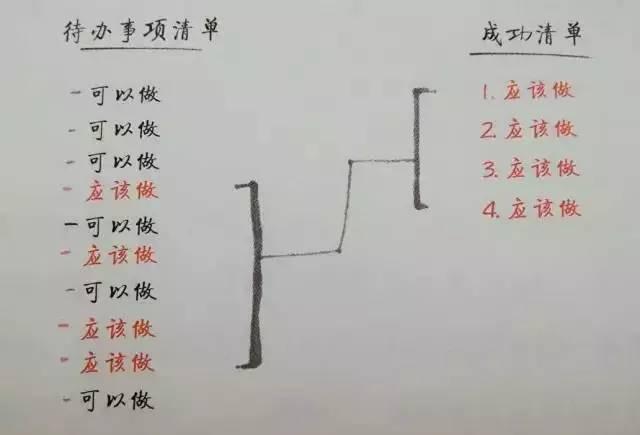 待办事项清单
- 可以做
- 可以做
- 可以做
- 应该做
- 可以做
- 应该做
- 可以做
- 应该做
- 应该做
- 可以做
成功清单
1. 应该做
2. 应该做
3. 应该做
4. 应该做